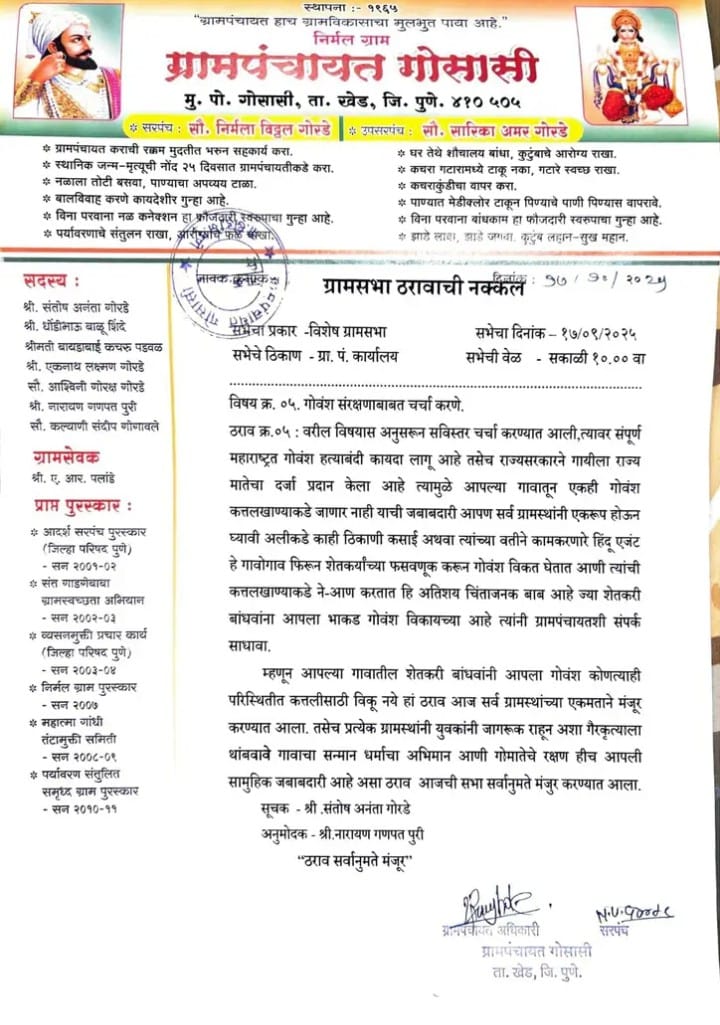 स्थापना :- १९६५
"ग्रामपंचायत हाच ग्रामविकासाचा मुलभुत पाया आहे."
निर्मल ग्राम
ग्रामपंचायत गोसासी
मु. पो. गोसासी, ता. खेड, जि. पुणे. ४१० ५०५
* सरपंच : सौ. निर्मला विठ्ठल गोरडे
* उपसरपंच : सौ. सारिका अमर गोरडे
* ग्रामपंचायत कराची रक्कम मुदतीत भरुन सहकार्य करा.
* स्थानिक जन्म-मृत्यूची नोंद २५ दिवसात ग्रामपंचायतीकडे करा.
* नळाला तोटी बसवा, पाण्याचा अपव्यय टाळा.
* बालविवाह करणे कायदेशीर गुन्हा आहे.
* विना परवाना नळ कनेक्शन हा फौजदारी स्वरुपाचा गुन्हा आहे.
* पर्यावरणाचे संतुलन राखा, आरोग्याचे फळ चाखा.
* घर तेथे शौचालय बांधा, कुटुंबाचे आरोग्य राखा.
* कचरा गटारामध्ये टाकू नका, गटारे स्वच्छ राखा.
* कचराकुंडीचा वापर करा.
* पाण्यात मेडीक्लोर टाकून पिण्याचे पाणी पिण्यास वापरावे.
* विना परवाना बांधकाम हा फौजदारी स्वरुपाचा गुन्हा आहे.
* झाडे लावा, झाडे जगवा. कुटुंब लहान-सुख महान.
जावक क्रमांक
दिनांक : १७/१०/२०२५
सदस्य :
श्री. संतोष अनंता गोरडे
श्री. धोंडीभाऊ बाळू शिंदे
श्रीमती बायडाबाई कचरु पडवळ
श्री. एकनाथ लक्ष्मण गोरडे
सौ. आश्विनी गोरक्ष गोरडे
श्री. नारायण गणपत पुरी
सौ. कल्याणी संदीप गोगावले
ग्रामसेवक
श्री. ए. आर. पलांडे
प्राप्त पुरस्कार :
* आदर्श सरपंच पुरस्कार
(जिल्हा परिषद पुणे)
- सन २००१-०२
* संत गाडगेबाबा
ग्रामस्वच्छता अभियान
- सन २००२-०३
* व्यसनमुक्ती प्रचार कार्य
(जिल्हा परिषद पुणे)
- सन २००३-०४
* निर्मल ग्राम पुरस्कार
- सन २००७
* महात्मा गांधी
तंटामुक्ती समिती
- सन २००८-०९
* पर्यावरण संतुलित
समृध्द ग्राम पुरस्कार
- सन २०१०-११
ग्रामसभा ठरावाची नक्कल
सभेचा प्रकार -विशेष ग्रामसभा सभेचा दिनांक – १७/०९/२०२५
सभेचे ठिकाण - ग्रा. पं. कार्यालय सभेची वेळ - सकाळी १०.०० वा
विषय क्र. ०५. गोवंश संरक्षणाबाबत चर्चा करणे.
ठराव क्र.०५ : वरील विषयास अनुसरून सविस्तर चर्चा करण्यात आली,त्यावर संपूर्ण
महाराष्ट्रात गोवंश हत्याबंदी कायदा लागू आहे तसेच राज्यसरकारने गायीला राज्य
मातेचा दर्जा प्रदान केला आहे त्यामुळे आपल्या गावातून एकही गोवंश
कत्तलखाण्याकडे जाणार नाही याची जबाबदारी आपण सर्व ग्रामस्थांनी एकरूप होऊन
घ्यावी अलीकडे काही ठिकाणी कसाई अथवा त्यांच्या वतीने कामकरणारे हिंदू एजंट
हे गावोगाव फिरून शेतकर्यांच्या फसवणूक करून गोवंश विकत घेतात आणी त्यांची
कत्तलखाण्याकडे ने-आण करतात हि अतिशय चिंताजनक बाब आहे ज्या शेतकरी
बांधवांना आपला भाकड गोवंश विकायच्या आहे त्यांनी ग्रामपंचायतशी संपर्क
साधावा.
म्हणून आपल्या गावातील शेतकरी बांधवांनी आपला गोवंश कोणत्याही
परिस्थितीत कत्तलीसाठी विकू नये हां ठराव आज सर्व ग्रामस्थांच्या एकमताने मंजूर
करण्यात आला. तसेच प्रत्येक ग्रामस्थांनी युवकांनी जागरूक राहून अशा गैरकृत्याला
थांबवावे गावाचा सन्मान धर्माचा अभिमान आणी गोमातेचे रक्षण हीच आपली
सामुहिक जबाबदारी आहे असा ठराव आजची सभा सर्वानुमते मंजुर करण्यात आला.
सूचक - श्री .संतोष अनंता गोरडे
अनुमोदक - श्री.नारायण गणपत पुरी
"ठराव सर्वानुमते मंजूर"
N.V.Gorde
ग्रामपंचायत अधिकारी सरपंच
ग्रामपंचायत गोसासी
ता. खेड, जि. पुणे.